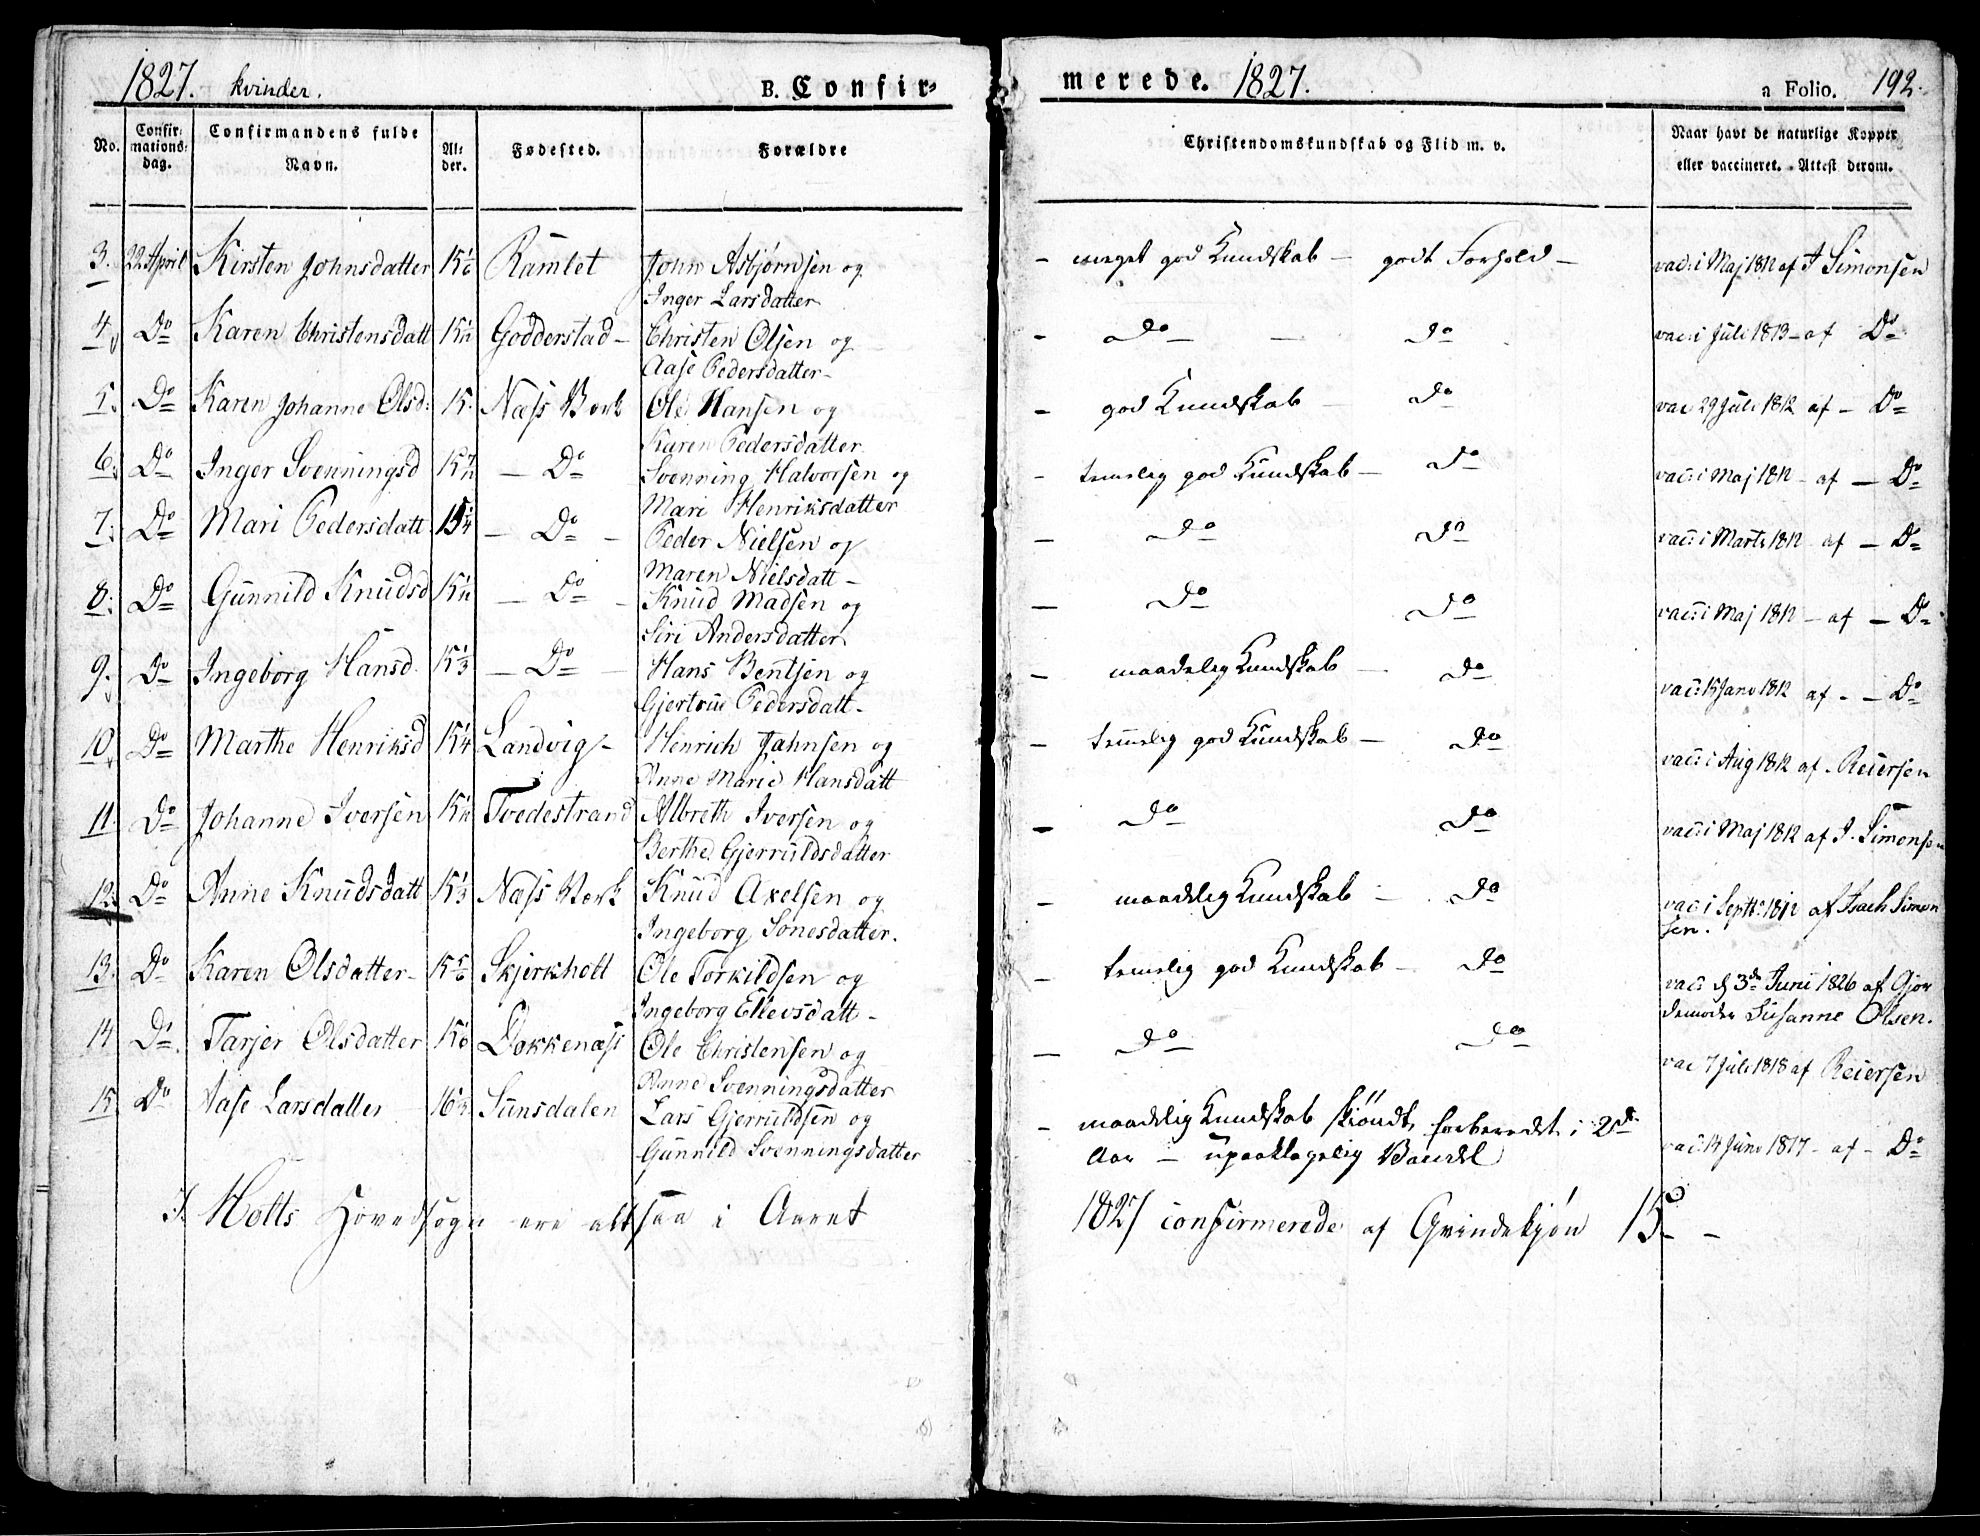 1827. kvinder. B. Confir-
merede. 1827. a Folio. 192.
No. Confirmations-dag. Confirmandens fulde Navn. Alder. Fødested. Forældre
Christendomskundskab og Flid m. v. Naar havt de naturlige Kopper eller vaccineret. Attest derom.
3. 22 April Kirsten Johnsdatter 15 1/6 Ramlet John Asbjørnsen og - meget god Kundskab - godt Forhold - vac: i Maj 1812 af J Simonsen
Inger Larsdatter
4. Do Karen Christensdatt Godderstad - Christen Olsen og - Do - - Do vac: i Juli 1813 - af Do
Aase Pedersdatter -
5. Do Karen Johanne Olsd: 15. Næss Værk Ole Hansen og - god Kundskab Do vac 29 Juli 1812 af - Do
Karen Pedersdatter
6. Do Inger Svenningsd - Do Svenning Halvorsen og - temelig god Kundskab - Do vac: i Maj 1812 - af - Do
Mari Henriksdatter
7. Do Mari Pedersdatt 15 1/4 - Do - Peder Nielsen og - Do Do vac: i Marts 1812 af - Do
Maren Nielsdatt -
8. Do Gunnild Knudsd - Do - Knud Madsen og - Do Do vac: i Maj 1812 - af - Do
Siri Andersdatter
9. Do Ingeborg Hansd. 15 1/3 - Do - Hans Bentsen og - maadelig Kundskab - Do vac: 15 Janv 1812 af - - Do
Gjertrue Pedersdatt -
10. Do Marthe Henriksd 15 1/4 Landvig - Hinrich Jahnsen og - temelig god Kundskab - Do vac: i Aug 1812 af - Reiersen
Anne Marie Hansdatt
11. Do Johanne Iversen Tvedestrand Albreth Iversen og - Do Do vac: i Maj 1812 af J. Simonsen
Berthe Gjerruldsdatter
12. Do Anne Knudsdatt 15 1/3 Næss Værk Knud Axelsen og - maadelig Kundskab - Do vac: i Septbr 1812 af Isach Simon
Ingeborg Jonesdatter. sen.
13. Do Karen Olsdatter - 15 5/6 Skjerkholt Ole Torkildsen og - temelig god Kundskab - Do vac: d 3de Juni 1826 af Gjor
Ingeborg Ellevsdatt - demoder Susanne Olsen.
14 Do Tarjer Olsdatter 15 1/6 Dokkenæss Ole Christensen og - Do Do vac 7 Juli 1818 af Reiersen
Anne Svenningsdatter
15 Do Aase Larsdatter Sunsdalen Lars Gjerruldsen og - maadelig Kundskab skjøndt forberedt i 2de vac: 14 Juno 1817 - af - Do
Gunnild Svenningsdatter Aar - upaaklagelig Vandel
I Holts Hovedsogn ere altsaa i Aaret 1827 confirmerede af Qvindekjøn 15 -